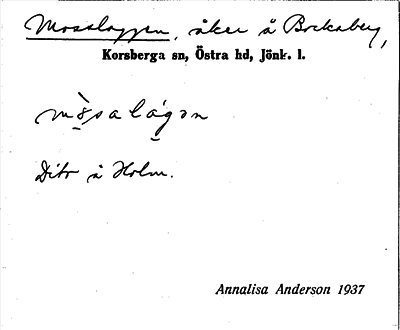 Mossloppen, åker å Bockaberg,
Korsberga sn, Östra hd, Jönk. l.
Dito å Holm.
Annalisa Anderson 1937